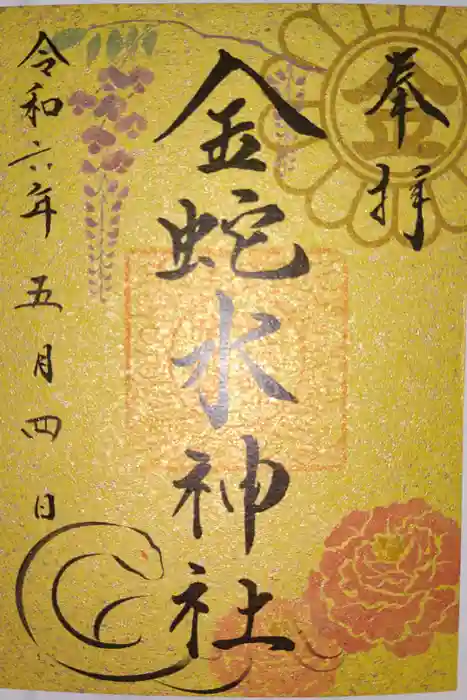 奉拝
金
金蛇水神社
令和六年五月四日